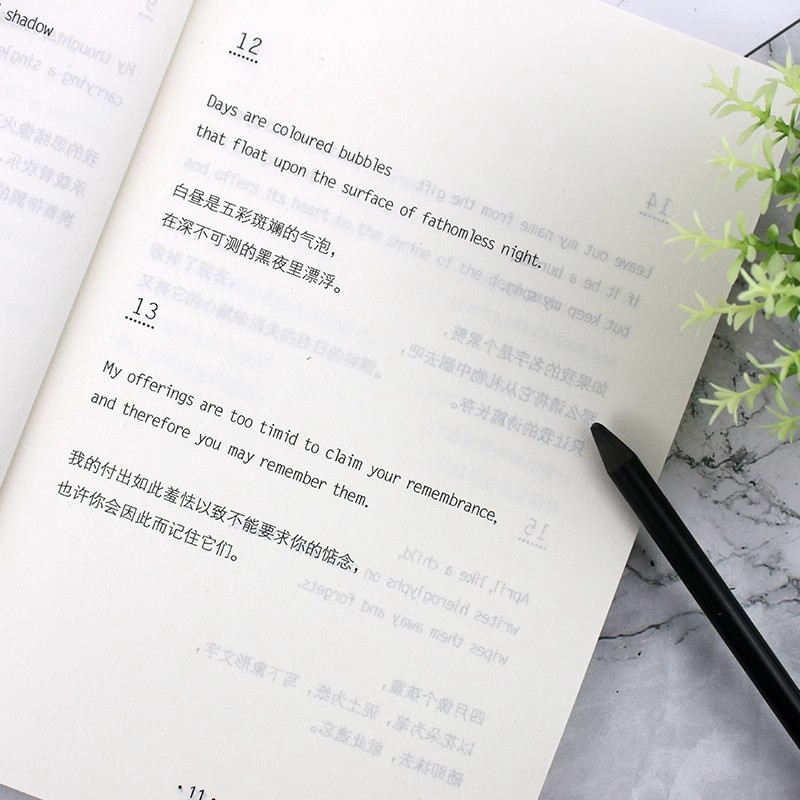 shadow
12
Days are coloured bubbles
that float upon the surface of fathomless night.
白昼是五彩斑斓的气泡，
在深不可测的黑夜里漂浮。
13
My offerings are too timid to claim your remembrance,
and therefore you may remember them.
我的付出如此羞怯以致不能要求你的惦念，
也许你会因此而记住它们。
·11·